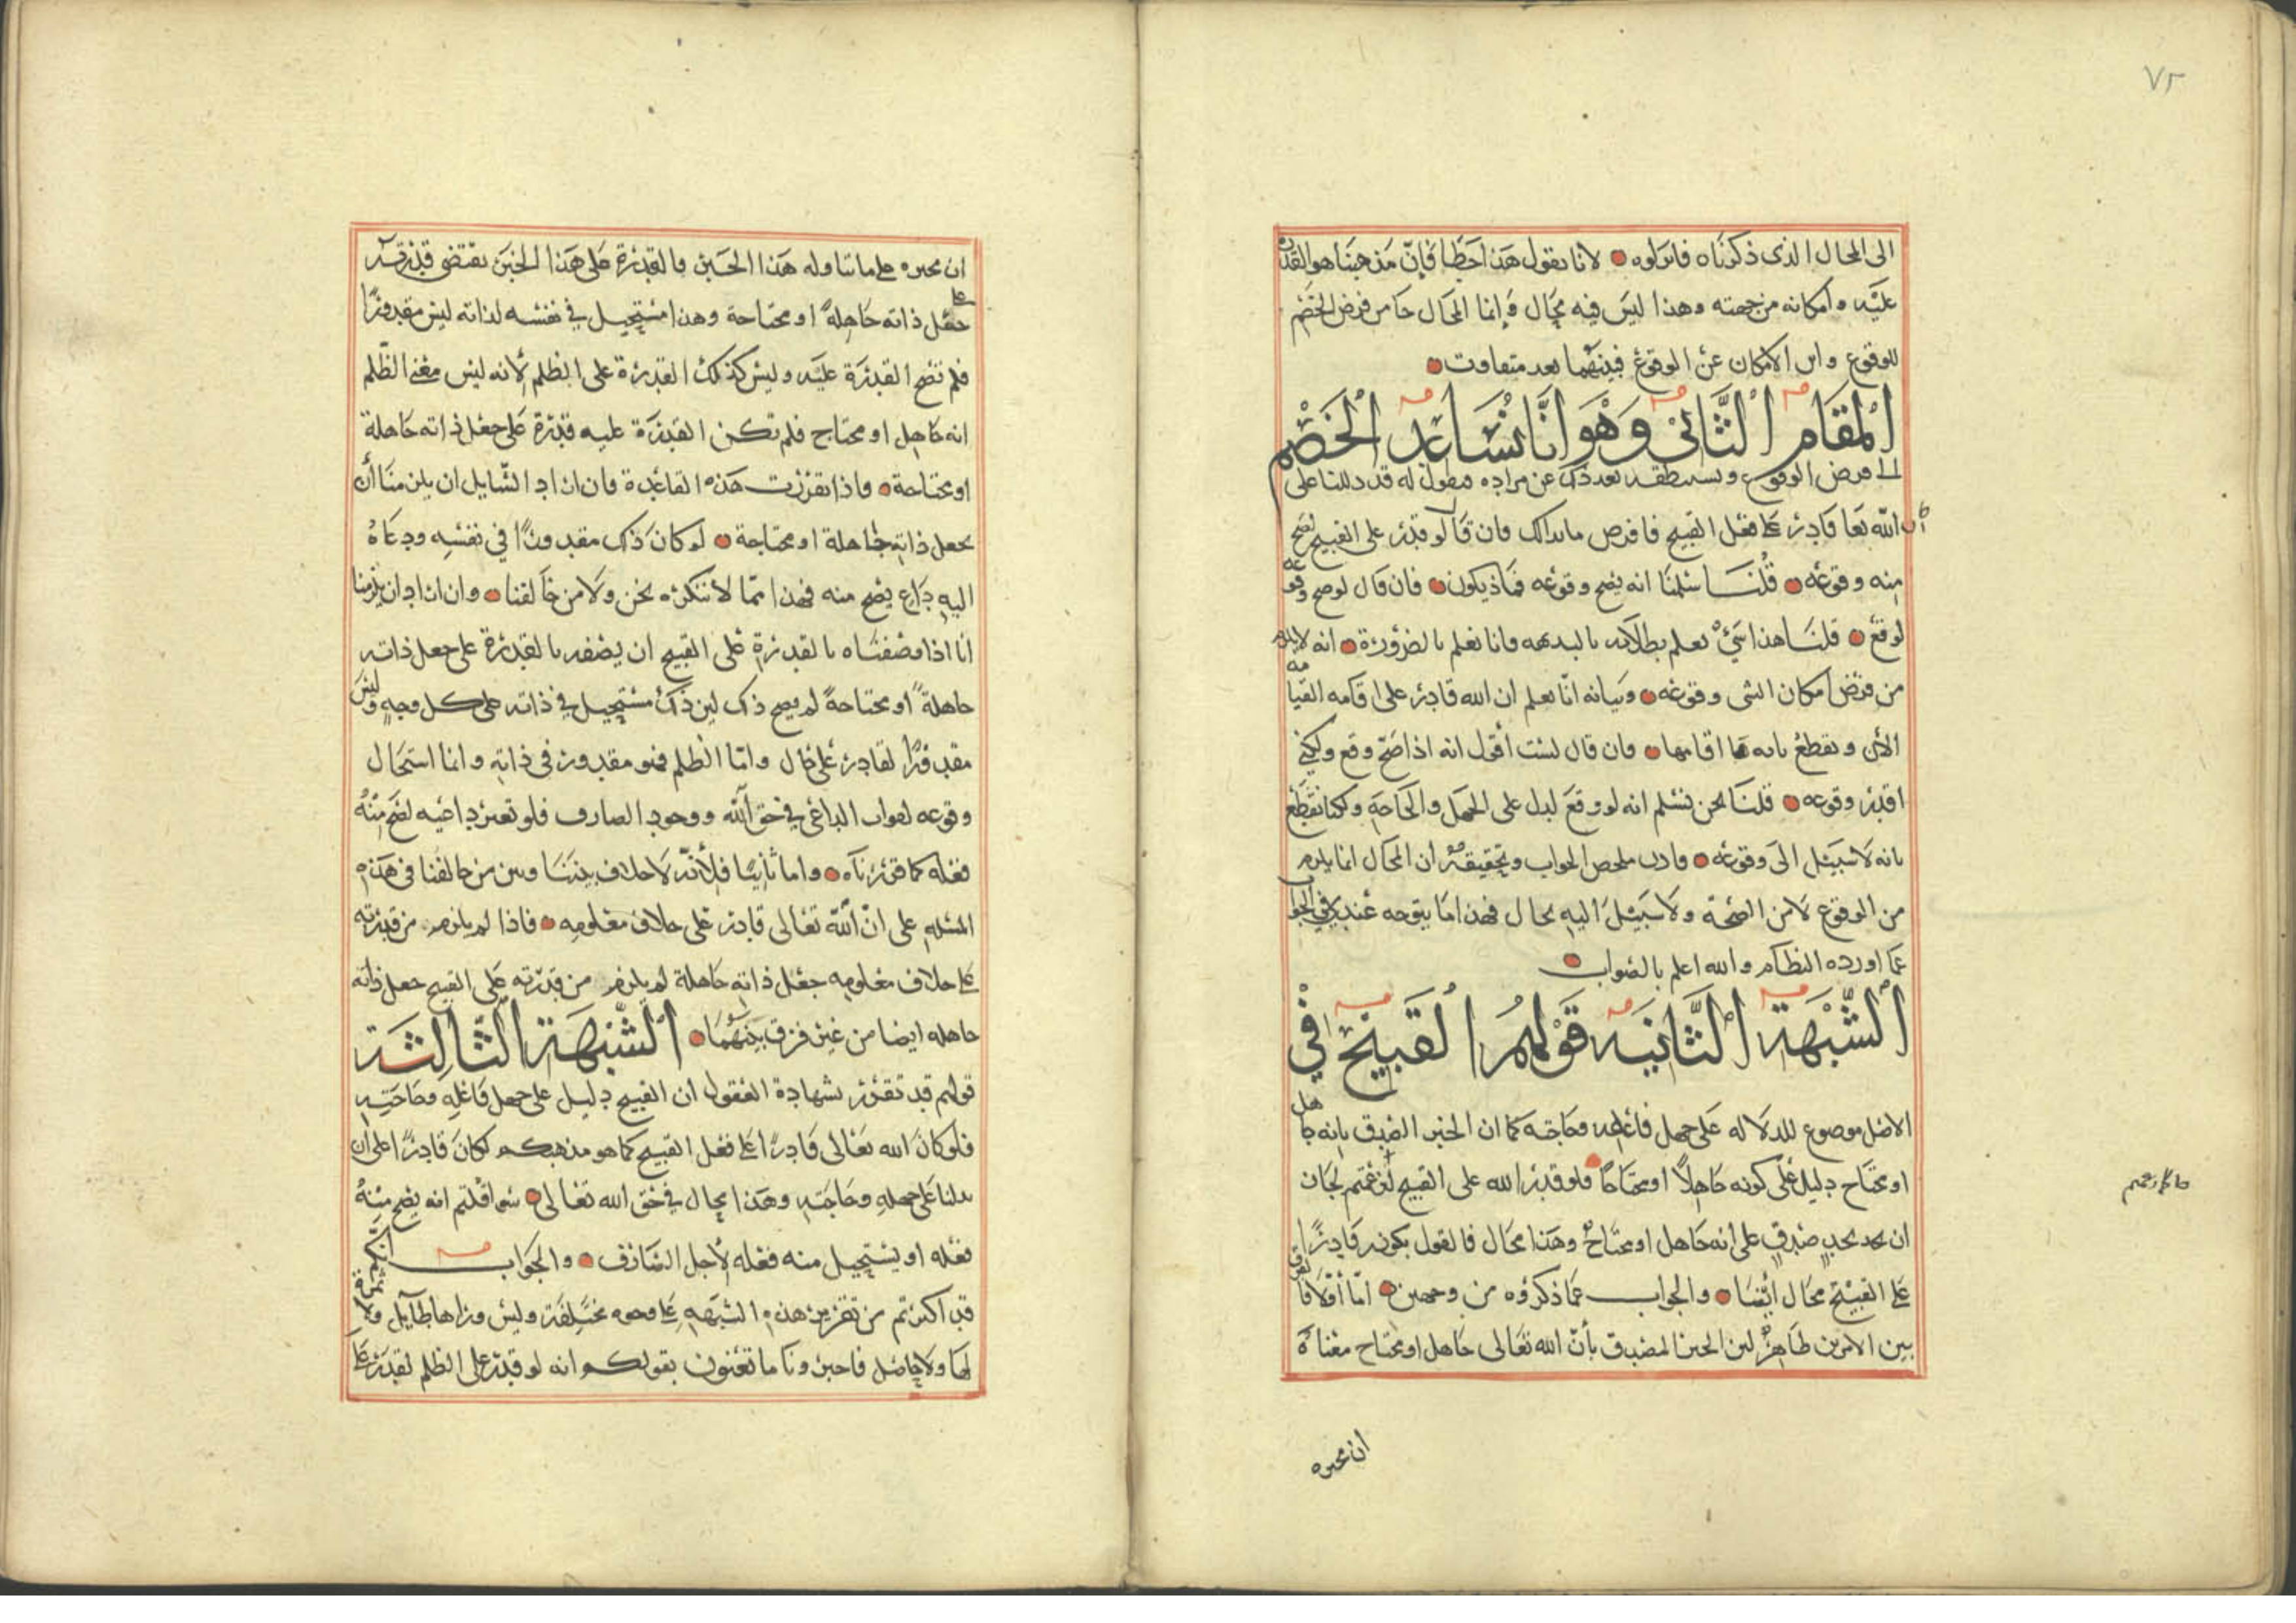 ٧٢
الى المحال الذى ذكرناه فابولوه لانا نقول هذا خطا فإنّ مذهبنا هو القدرة
عليه وامكانه من جهته وهذا ليس فيه محال وإنما المحال جا من فرض الخصم
للوقوع واين الامكان عن الوقوع فبينهما بعد متفاوت
المقام الثانى وهو انا نساعد الخصم
الى فرض الوقوع ونستنطقه بعد ذلك عن مراده فنقول له قد دللنا على
أن الله تعا قادر على فعل القبيح فافرض ما بدالك فان قال لو قدر على القبيح لصح
منه وقوعه قلنا سلمنا انه يصح وقوعه فماذ يكون فان قال لو صح وقوعه
لوقع قلنا هذا شئ نعلم بطلانه بالبديهه وانا نعلم بالضرورة انه لا يلزم
من فرض امكان الشى وقوعه وبيانه انّا نعلم ان الله قادر على اقامه القيامه
الأن ونقطع بانه ما اقامها وان قال لست أقول انه اذا صح وقع ولكني
اقدر وقوعه قلنا نحن نسلم انه لو وقع لدل على الجهل والحاجة ولكنا نقطع
بانه لا سبيل الى وقوعه واذن ملخص الجواب وتحقيقه أن المحال انما يلزم
من الوقوع لا من الصحة ولا سبيل اليه بحال فهذا ما يتوجه عندي في الجواب
عما اورده النظام والله اعلم بالصواب
الشبهة الثانيه قولهم القبيح في
الاصل موضوع للدلاله على جهل فاعله وحاجته كما ان الخبر الصدق بانه جاهل
او محتاج دليل على كونه جاهلًا او محتاجًا فلو قدر الله على القبيح لجان
ما زعمتم
ان يخبر صدق على انه جاهل او محتاج وهذا محال فالقول بكونه قادرًا
على القبيح محال ايضا والجواب عما ذكروه من وجهين امّا أوّلا فالفرق
بين الامرين ظاهر لان الخبر المصدق بأن الله تعالى جاهل او محتاج معناه
ان مخبره
ان مخبره على ما تناوله هذا الخبر فالقدرة على هذا الخبر يقتضى قدرته
على جعل ذاته جاهلة او محتاجة وهذا مستحيل في نفسه لذاته ليس مقدورًا
فلم تصح القدرة عليه وليس كذلك القدرة على الظلم لأنه ليس معنى الظلم
انه جاهل او محتاج فلم تكن القدرة عليه قدرة على جعل ذاته جاهلة
او محتاجة واذا تقررت هذه القاعدة فان اراد السّايل ان يلزمنا أن
يجعل ذاته جاهلة او محتاجة لو كان ذلك مقدورًا في نفسه ودعاه
اليه داع يصح منه فهذا ممّا لا ننكره نحن ولا من خالفنا وان اراد ان يلزمنا
أنا اذا وصفناه بالقدرة على القبيح ان يصفه بالقدرة على جعل ذاته
جاهلة او محتاجة لم يصح ذلك لان ذلك مستحيل في ذاته على كل وجه وليس
مقدورًا لقادر على حال وامّا الظلم فهو مقدور في ذاته وانما استحال
وقوعه لفوات الداعي في حق الله ووجود الصارف فلو تعين داعيه لصح منه
فعله كما قررناه واما ثانيًا فلأنّه لا خلاف بيننا وبين من خالفنا في هذه
المسئله على انّ الله تعالى قادر على خلاف معلومه فاذا لم يلزم من قدرته
على خلاف معلومه جعل ذاته جاهلة لم يلزم من قدرته على القبيح جعل ذاته
جاهله ايضا من غير فرق بينهما الشبهة الثالثة
قولهم قد تقرر بشهادة العقول ان القبيح دليل على جهل فاعله وحاجته
فلو كان الله تعالى قادرًا على فعل القبيح كما هو مذهبكم لكان قادرًا على ان
يدلنا على جهله وحاجته وهذا محال في حق الله تعالى سوا قلتم انه يصح منه
فعله او يستحيل منه فعله لأجل الصارف والجواب انكم
قد اكثرتم من تقرير هذه الشبهه على وجوه مختلفة وليس وراها طايل ولا ثمرة
لها ولا حاصل فاخبرونا ما تعنون بقولكم انه لو قدر على الظلم لقدر على